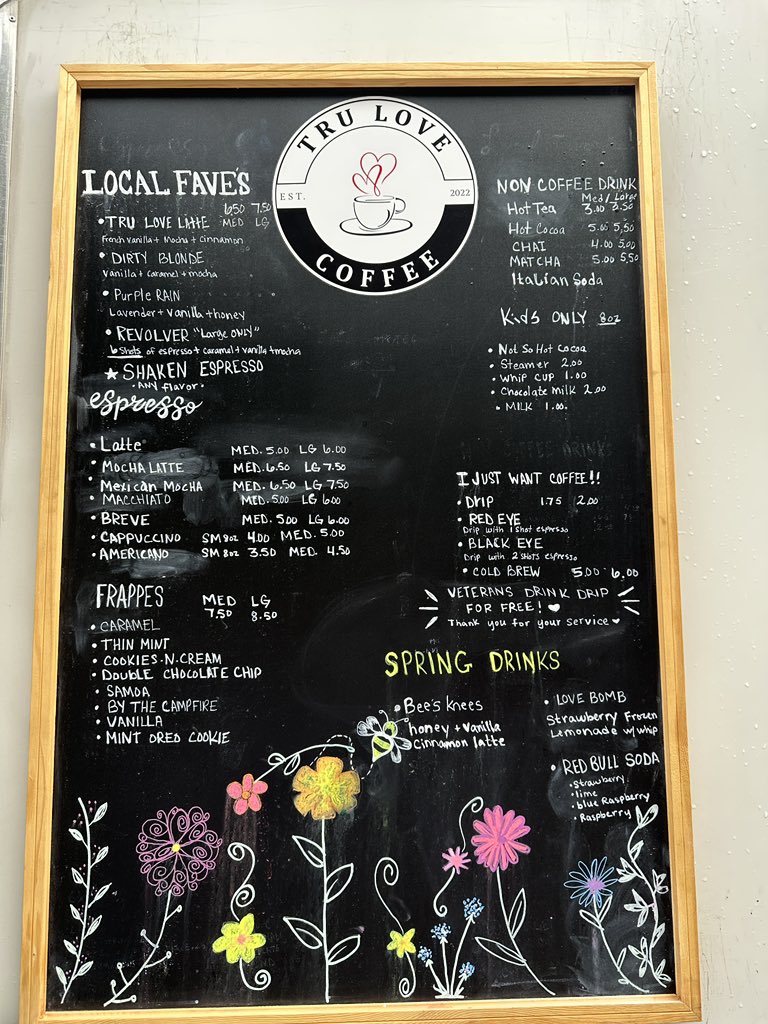 TRU LOVE
EST. 2022
COFFEE
LOCAL FAVE'S
6.50 7.50
• TRU LOVE LATTE MED LG
French vanilla + Mocha + cinnamon
• DIRTY BLONDE
Vanilla + caramel + mocha
• Purple RAIN
Lavender + vanilla + honey
• REVOLVER "Large ONLY"
6 Shots of espresso + caramel + vanilla + mocha
★ SHAKEN ESPRESSO
• ANY flavor •
espresso
• Latte MED. 5.00 LG 6.00
• MOCHA LATTE MED. 6.50 LG 7.50
• Mexican MOCHA MED. 6.50 LG 7.50
• MACCHIATO MED. 5.00 LG 6.00
• BREVE MED. 5.00 LG 6.00
• CAPPUCCINO SM 8oz 4.00 MED. 5.00
• AMERICANO SM 8oz 3.50 MED. 4.50
FRAPPES MED LG
7.50 8.50
• CARAMEL
• THIN MINT
• COOKIES-N-CREAM
• DOUBLE CHOCOLATE CHIP
• SAMOA
• BY THE CAMPFIRE
• VANILLA
• MINT OREO COOKIE
NON COFFEE DRINK
Med/Large
Hot Tea 3.00 3.50
Hot Cocoa 5.00 5.50
CHAI 4.00 5.00
MATCHA 5.00 5.50
Italian Soda
Kids ONLY 8oz
• Not So Hot Cocoa
• Steamer 2.00
• Whip cup 1.00
• Chocolate milk 2.00
• MILK 1.00
I JUST WANT COFFEE!!
• DRIP 1.75 2.00
• RED EYE
Drip with 1 shot espresso
• BLACK EYE
Drip with 2 shots espresso
• COLD BREW 5.00 6.00
VETERANS DRINK DRIP
FOR FREE! ♥
Thank you for your service ♥
SPRING DRINKS
• Bee's knees
honey + vanilla
cinnamon latte
• LOVE BOMB
Strawberry Frozen
Lemonade w/ whip
• RED BULL SODA
• Strawberry
• lime
• blue Raspberry
• Raspberry